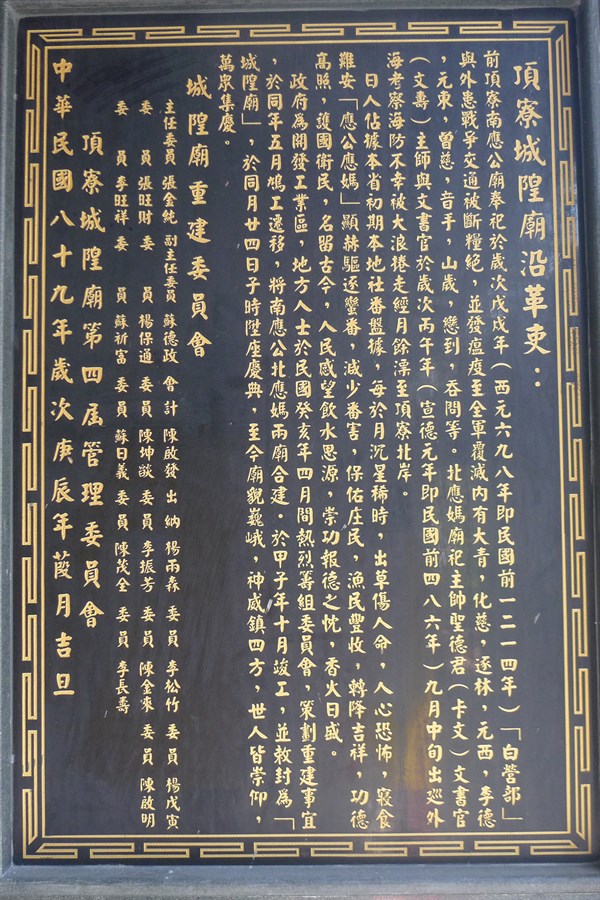 頂寮城隍廟沿革吏：
前頂寮南應公廟奉祀於歲次戊戌年（西元六九八年即民國前一二一四年）「白營部」
與外患戰爭交通被斷糧絕，並發瘟疫至全軍覆滅內有大青，化慈，逐林，元西，季德
，元東，曾慈，苦手，山歲，戀到，吞問等。北應媽廟祀主帥聖德君（卡文）文書官
（文壽）主師與文書官於歲次丙午年（宣德元年即民國前四八六年）九月中旬出巡外
海考察海防不幸被大浪捲走經月餘漂至頂寮北岸。
日人佔據本省初期本地社番盤據，每於月沉星稀時，出草傷人命，人心恐怖，寢食
難安「應公應媽」顯赫驅逐蠻番，減少番害，保佑庄民，漁民豐收，轉降吉祥，功德
高照，護國衛民，名留古今，人民感望飲水思源，崇功報德之忱，香火日盛。
政府為開發工業區，地方人士於民國癸亥年四月間熱烈籌組委員會，策劃重建事宜
，於同年五月鳩工遷移，將南應公北應媽兩廟合建。於甲子年十月竣工，並敕封為「
城隍廟」，於同月廿四日子時陞座慶典，至今廟貌巍峨，神威鎮四方，世人皆崇仰，
萬眾集慶。
城隍廟重建委員會
主任委員 張金純 副主任委員 蘇德政 會計 陳啟發 出納 楊雨森 委員 李松竹 委員 楊戊寅
委員 張旺財 委員 楊保通 委員 陳坤談 委員 李振芳 委員 陳金來 委員 陳啟明
委員 李旺祥 委員 蘇祈富 委員 蘇日義 委員 陳茂全 委員 李長壽
頂寮城隍廟第四屆管理委員會
中華民國八十九年歲次庚辰年葭月吉旦